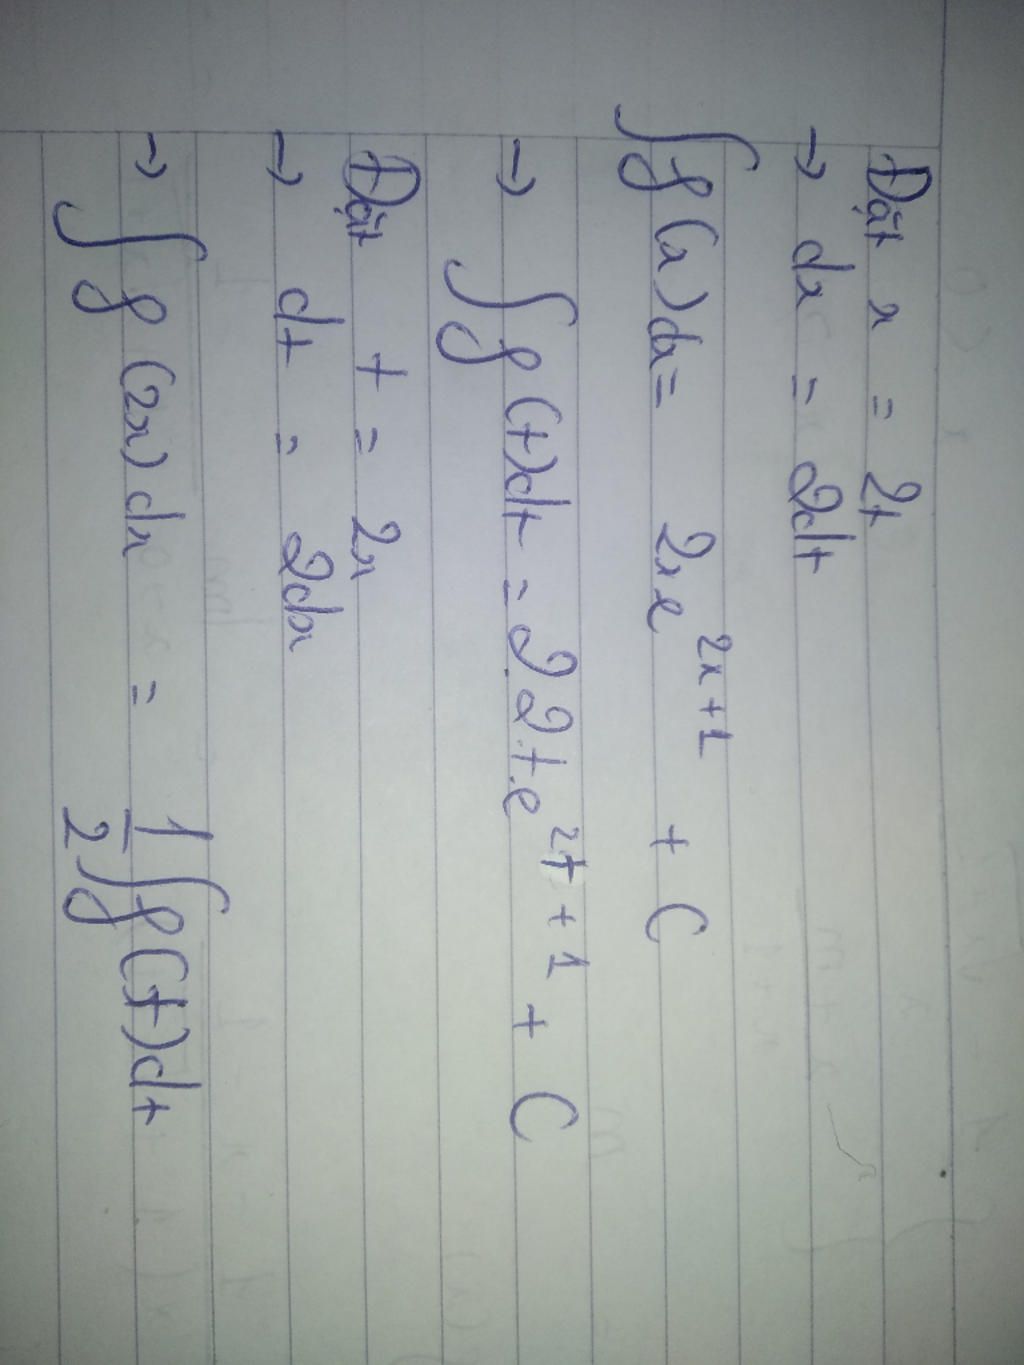 Đặt x = 2t
→ dx = 2dt
∫f(x)dx = 2x e^{2x+1} + C
→ ∫f(t)dt = 2.2t.e^{2t+1} + C
Đặt t = 2x
→ dt = 2dx
→ ∫f(2x)dx = \frac{1}{2}∫f(t)dt